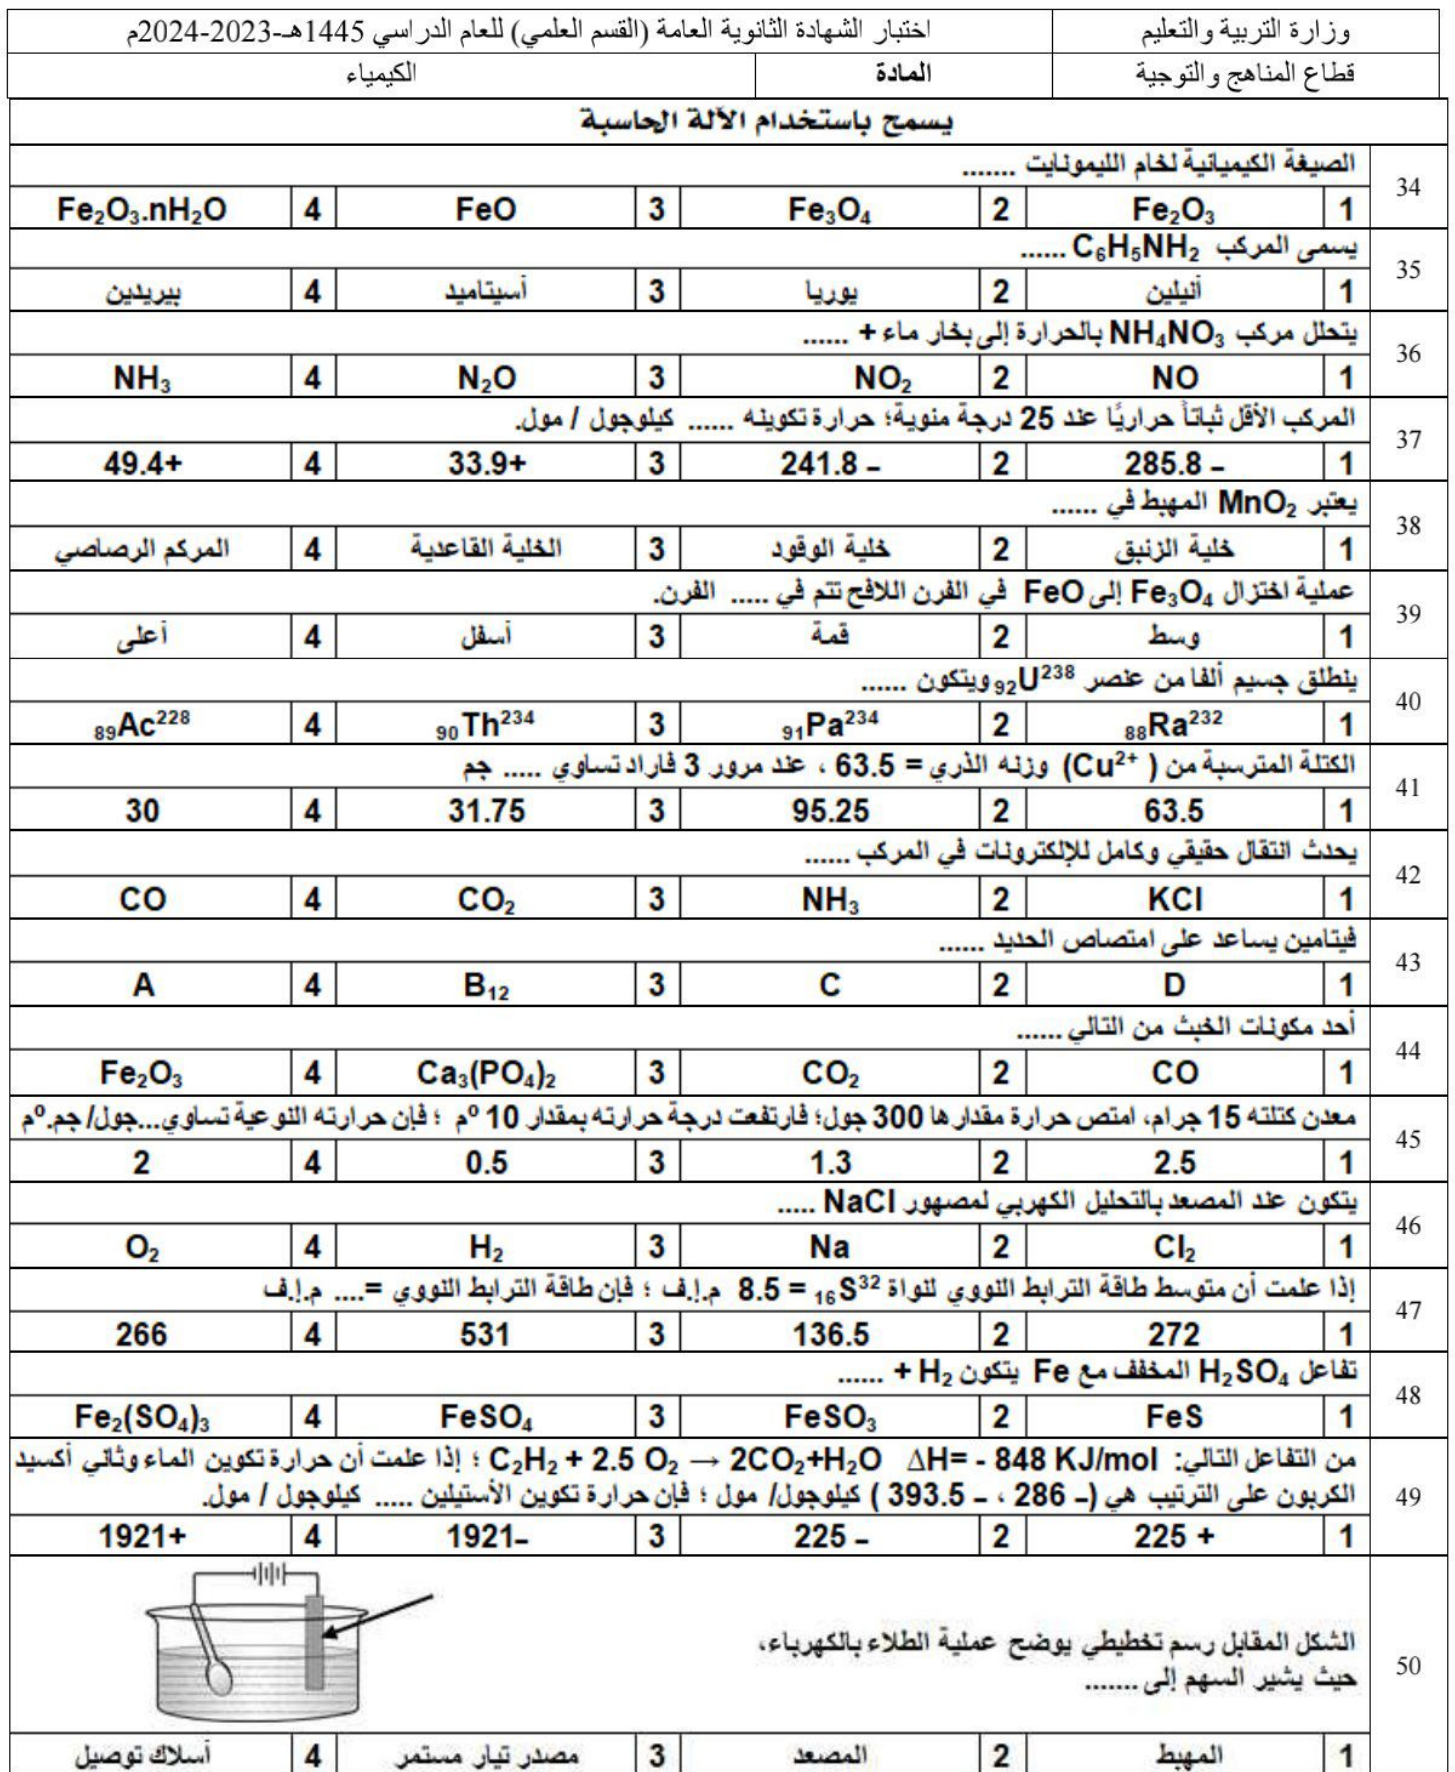 وزارة التربية والتعليم اختبار الشهادة الثانوية العامة (القسم العلمي) للعام الدراسي 1445هـ-2023-2024م
قطاع المناهج والتوجية المادة الكيمياء
يسمح باستخدام الآلة الحاسبة
34 الصيغة الكيميائية لخام الليمونايت .......
1 Fe₂O₃ 2 Fe₃O₄ 3 FeO 4 Fe₂O₃.nH₂O
35 يسمى المركب C₆H₅NH₂ ......
1 أنيلين 2 يوريا 3 أسيتاميد 4 بيريدين
36 يتحلل مركب NH₄NO₃ بالحرارة إلى بخار ماء + ......
1 NO 2 NO₂ 3 N₂O 4 NH₃
37 المركب الأقل ثباتاً حراريًا عند 25 درجة مئوية؛ حرارة تكوينه ...... كيلوجول / مول.
1 – 285.8 2 – 241.8 3 +33.9 4 +49.4
38 يعتبر MnO₂ المهبط في ......
1 خلية الزئبق 2 خلية الوقود 3 الخلية القاعدية 4 المركم الرصاصي
39 عملية اختزال Fe₃O₄ إلى FeO في الفرن اللافح تتم في ..... الفرن.
1 وسط 2 قمة 3 أسفل 4 أعلى
40 ينطلق جسيم ألفا من عنصر ₉₂U²³⁸ ويتكون ......
1 ₈₈Ra²³² 2 ₉₁Pa²³⁴ 3 ₉₀Th²³⁴ 4 ₈₉Ac²²⁸
41 الكتلة المترسبة من ( Cu²⁺) وزنه الذري = 63.5 ، عند مرور 3 فاراد تساوي ..... جم
1 63.5 2 95.25 3 31.75 4 30
42 يحدث انتقال حقيقي وكامل للإلكترونات في المركب ......
1 KCl 2 NH₃ 3 CO₂ 4 CO
43 فيتامين يساعد على امتصاص الحديد ......
1 D 2 C 3 B₁₂ 4 A
44 أحد مكونات الخبث من التالي ......
1 CO 2 CO₂ 3 Ca₃(PO₄)₂ 4 Fe₂O₃
45 معدن كتلته 15 جرام، امتص حرارة مقدارها 300 جول؛ فارتفعت درجة حرارته بمقدار 10 ⁰م ؛ فإن حرارته النوعية تساوي...جول/ جم.⁰م
1 2.5 2 1.3 3 0.5 4 2
46 يتكون عند المصعد بالتحليل الكهربي لمصهور NaCl .....
1 Cl₂ 2 Na 3 H₂ 4 O₂
47 إذا علمت أن متوسط طاقة الترابط النووي لنواة ₁₆S³² = 8.5 م.إ.ف ؛ فإن طاقة الترابط النووي =.... م.إ.ف
1 272 2 136.5 3 531 4 266
48 تفاعل H₂SO₄ المخفف مع Fe يتكون H₂ + ......
1 FeS 2 FeSO₃ 3 FeSO₄ 4 Fe₂(SO₄)₃
49 من التفاعل التالي: C₂H₂ + 2.5 O₂ → 2CO₂+H₂O ΔH= - 848 KJ/mol ؛ إذا علمت أن حرارة تكوين الماء وثاني أكسيد
الكربون على الترتيب هي (– 286 ، – 393.5 ) كيلوجول/ مول ؛ فإن حرارة تكوين الأستيلين ..... كيلوجول / مول.
1 + 225 2 – 225 3 –1921 4 +1921
50 الشكل المقابل رسم تخطيطي يوضح عملية الطلاء بالكهرباء،
حيث يشير السهم إلى .......
1 المهبط 2 المصعد 3 مصدر تيار مستمر 4 أسلاك توصيل